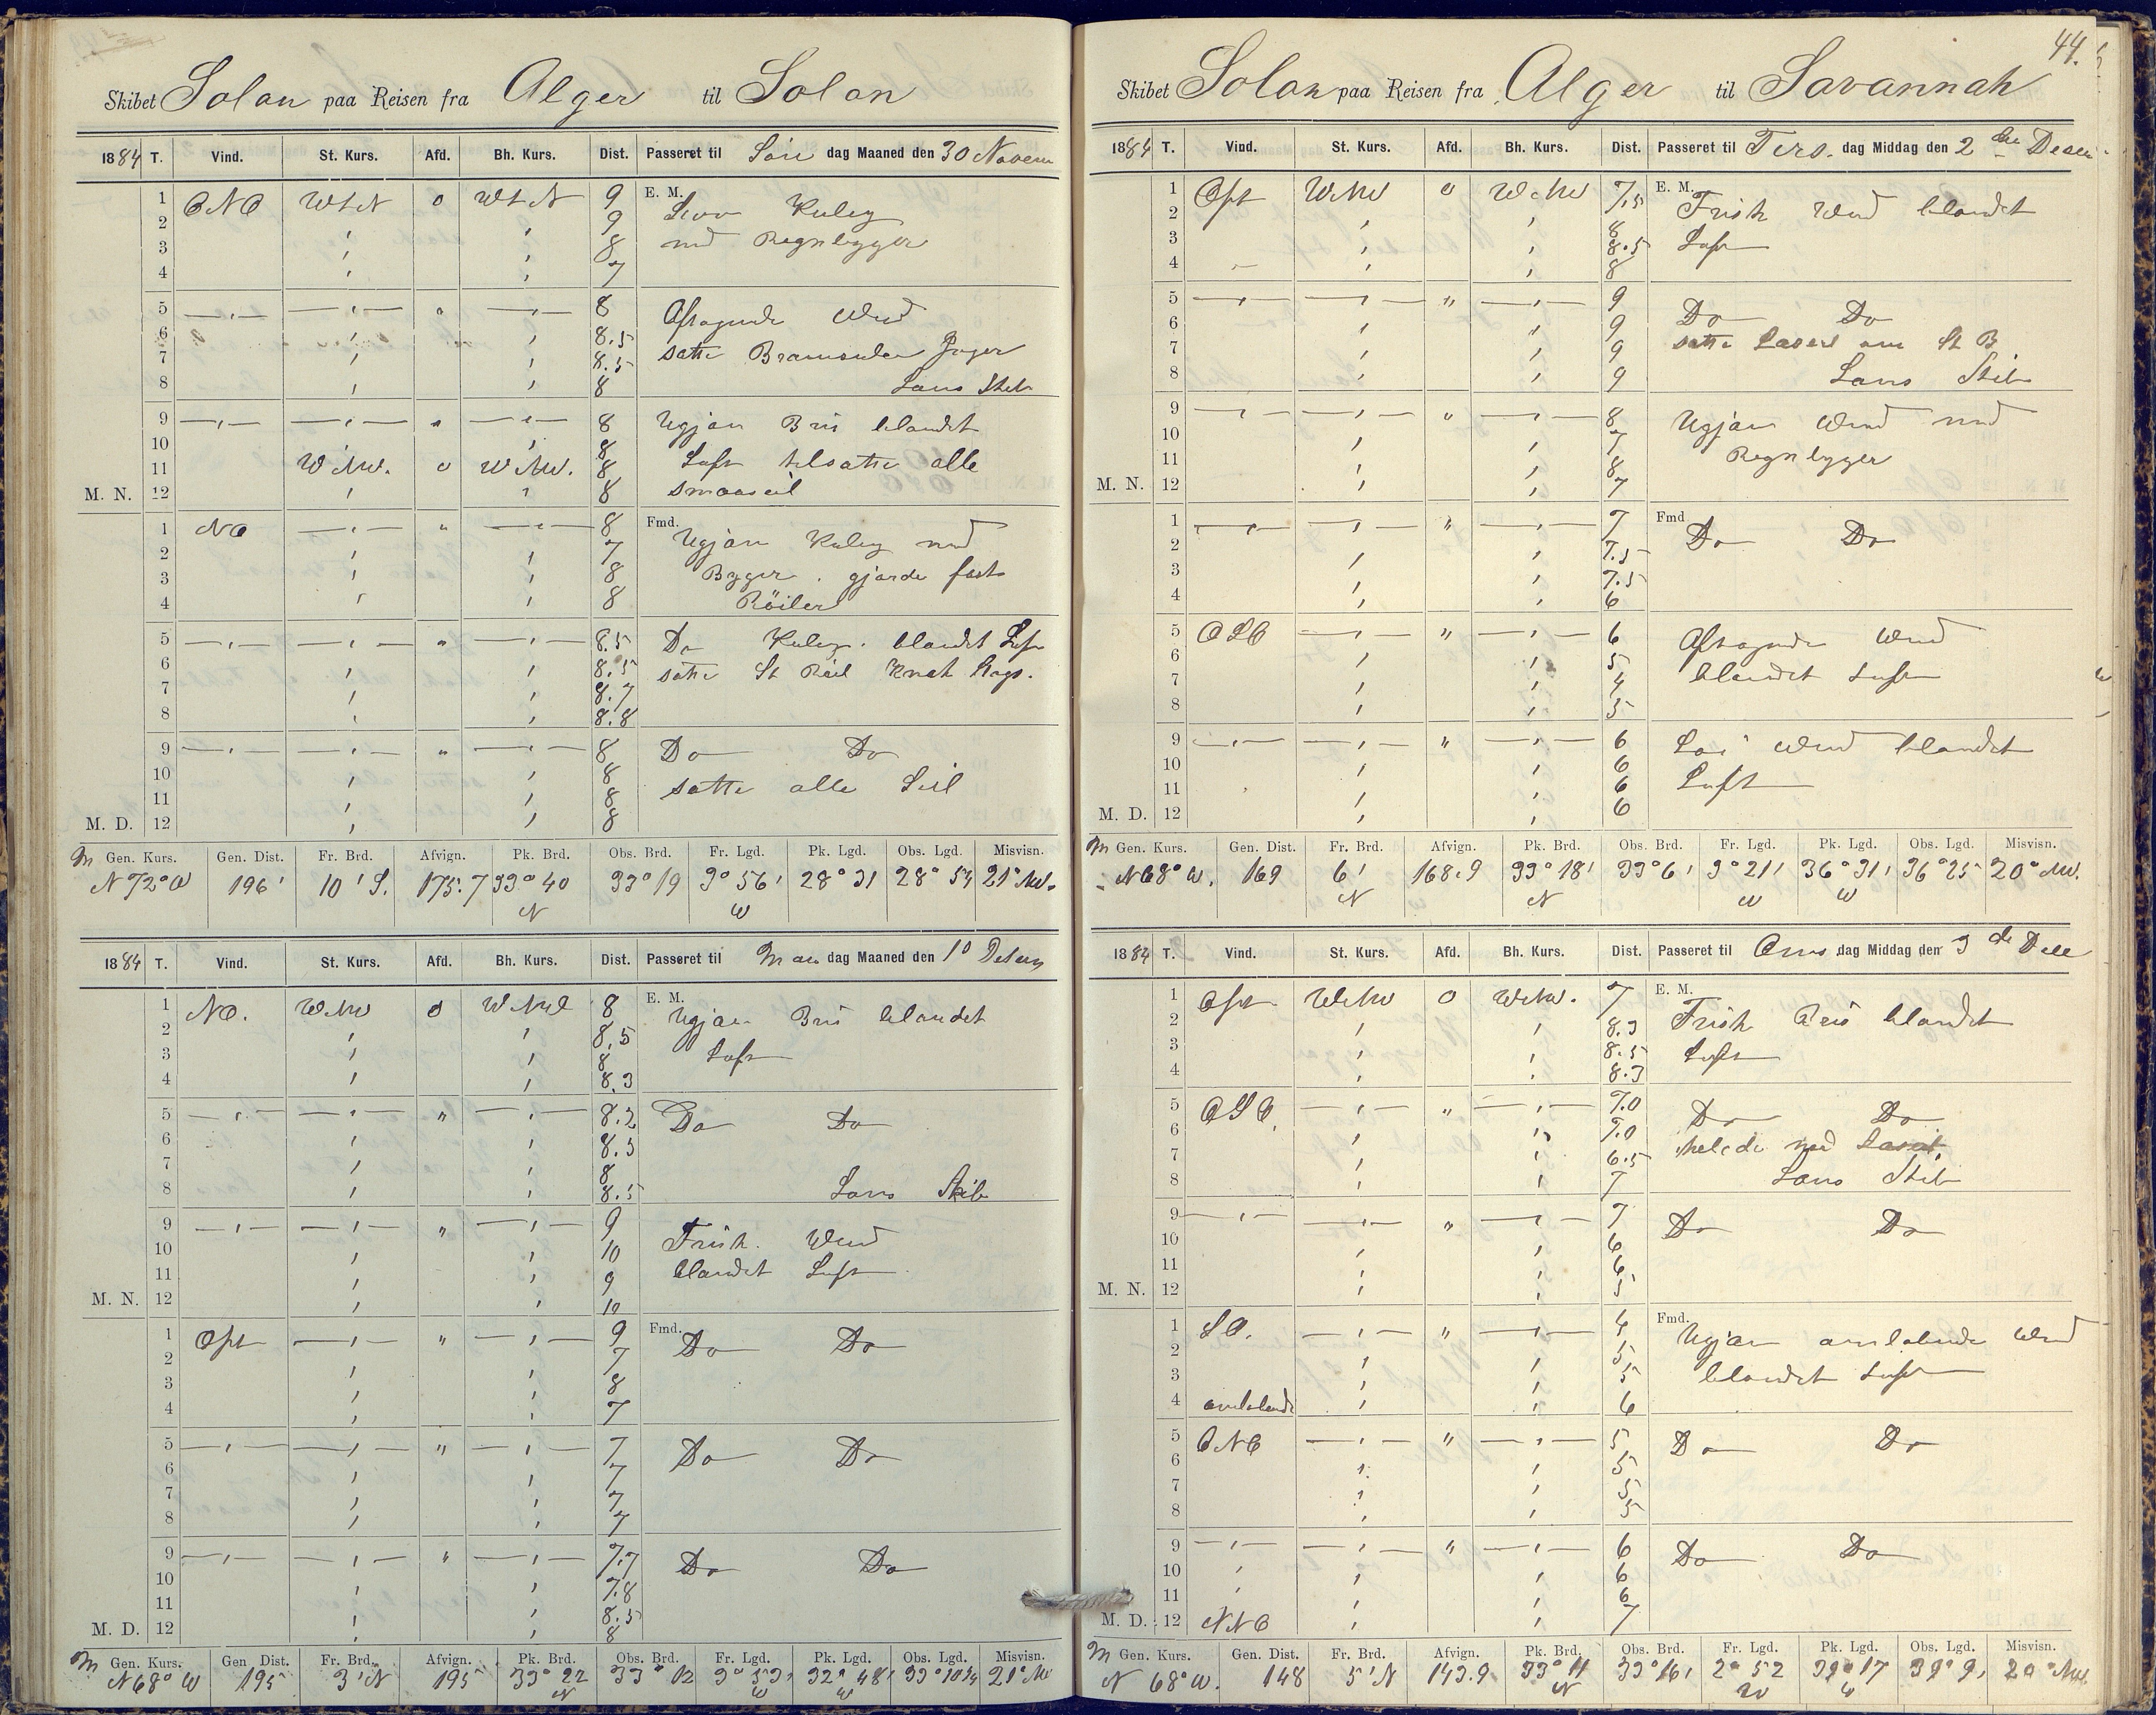 Skibet Solon paa Reisen fra Alger til Solon
1884 T. Vind. St. Kurs. Afd. Bh. Kurs. Dist. Passeret til Søn dag Maaned den 30 Novem
E. M.
1 ONO WtN o WtN 9 Kuling
2 9
3 8 med Regnbygger
4 7
5 8 Aftagende Wind
6 8.5
7 8.5 satte Jager
8 8 Lens Skib
9 8 Ugjævn Bris blandet
10 8
11 WNW. o WNW. 8 Luft tilsatte alle
M. N. 12 8 smaaseil
Fmd.
1 NO 8 Ugjævn Kuling med
2 7
3 8 Bygger. gjorde fast
4 8 Röiler
5 8.5 Do Kuling. blandet Luft
6 8.5 satte St Röil
7 8.7
8 8.8
9 8 Do Do
10 8 satte alle Seil
11 8
M. D. 12 8
M Gen. Kurs. Gen. Dist. Fr. Brd. Afvign. Pk. Brd. Obs. Brd. Fr. Lgd. Pk. Lgd. Obs. Lgd. Misvisn.
N 72° W 196' 10' S. 175.7 33° 40 N 33° 19 3° 56' W 28° 31 28° 54 21° NW.
1884 T. Vind. St. Kurs. Afd. Bh. Kurs. Dist. Passeret til Man dag Maaned den 1º Desem
E. M.
1 NO. WNW o WNW 8 Ugjævn Bris blandet
2 8.5
3 8 Luft
4 8.3
5 8.2 Do Do
6 8.3
7 8
8 8.5 Lens Skib
9 9 Frisk. Wind
10 10
11 9 blandet Luft
M. N. 12 10
Fmd.
1 Ost 9 Do Do
2 7
3 8
4 7
5 7 Do Do
6 7
7 7
8 7
9 7.7 Do Do
10 7.8
11 8.5
M. D. 12 8
M Gen. Kurs. Gen. Dist. Fr. Brd. Afvign. Pk. Brd. Obs. Brd. Fr. Lgd. Pk. Lgd. Obs. Lgd. Misvisn.
N 68° W 195 3' N 195 33° 22 N 33° 12 3° 53' W 32° 48' W 33° 10 21° NW
44.
Skibet Solon paa Reisen fra Alger til Savannah
1884 T. Vind. St. Kurs. Afd. Bh. Kurs. Dist. Passeret til Tirs. dag Middag den 2 den Desem
E. M.
1 Ost WNW o WNW 7.5 Frisk Wind blandet
2 8
3 8.5 Luft
4 8
5 9 Do Do
6 9
7 9 satte Læseil om St B
8 9 Lens Skib
9 8 Ugjævn Wind med
10 7
11 8 Regnbygger
M. N. 12 7
Fmd
1 7 Do Do
2 7.5
3 7.5
4 6
5 OSO 6 Aftagende Wind
6 5
7 4 blandet Luft
8 5
9 6 Løi Wind blandet
10 6
11 6 Luft
M. D. 12 6
M Gen. Kurs. Gen. Dist. Fr. Brd. Afvign. Pk. Brd. Obs. Brd. Fr. Lgd. Pk. Lgd. Obs. Lgd. Misvisn.
N 68° W. 169 6' N 168.9 33° 18' N 33° 6' 3° 21' W 36° 31' W 36° 25 20° NW.
1884 T. Vind. St. Kurs. Afd. Bh. Kurs. Dist. Passeret til Ons dag Middag den 3 de Dece
E. M.
1 Ost WNW o WNW. 7 Frisk Bris blandet
2 8.3
3 8.5 Luft
4 8.3
5 OSO. 7.0 Do Do
6 7.0
7 6.5 halede ned Læseil
8 7 Lens Skib
9 7 Do Do
10 6
11 6
M. N. 12 5
Fmd.
1 SO. 4 Ugjævn omløbende Wind
2 5
3 5 blandet Luft
4 omløbende 6
5 ONO 5 Do Do
6 5
7 5
8 5
9 6 Do Do
10 6
11 6
M. D. 12 NNO 7
M Gen. Kurs. Gen. Dist. Fr. Brd. Afvign. Pk. Brd. Obs. Brd. Fr. Lgd. Pk. Lgd. Obs. Lgd. Misvisn.
N 68° W. 148 5' N 143.9 33° 11 N 33° 16' 2° 52 W 39° 17 W 39° 9' 20° NW.